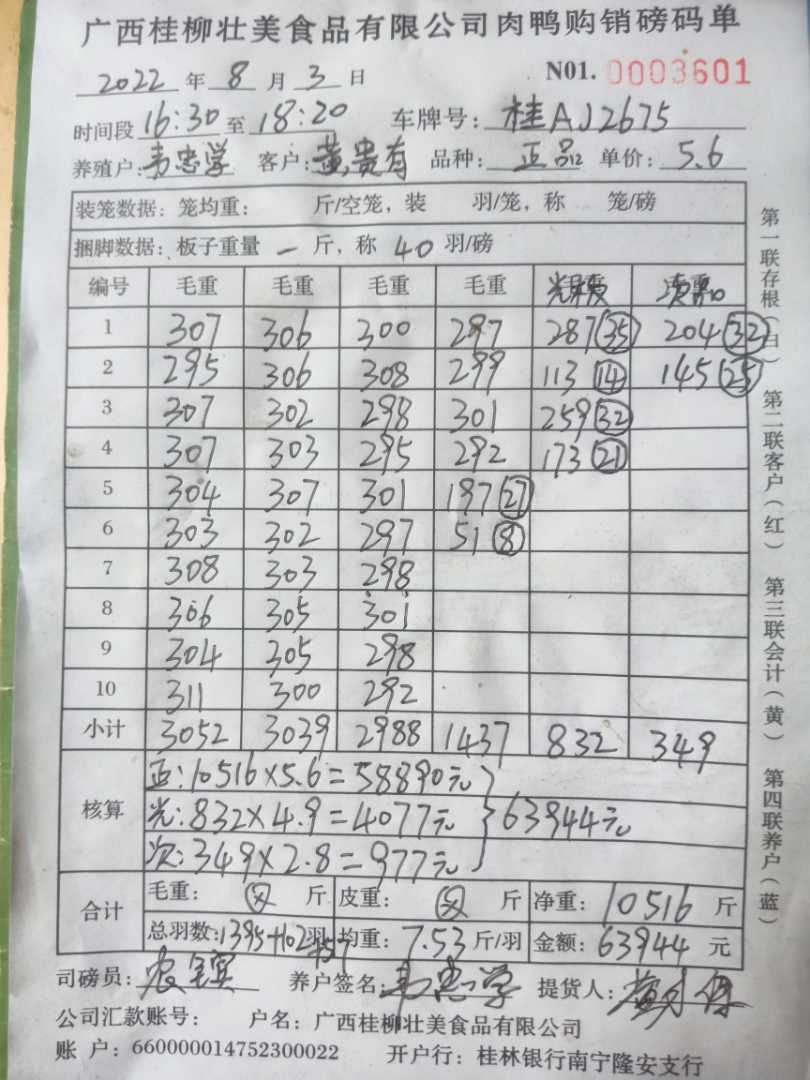 广西桂柳壮美食品有限公司肉鸭购销磅码单
2022 年 8 月 3 日 N01. 0003601
时间段 16:30 至 18:20 车牌号: 桂AJ2675
养殖户: 韦忠学 客户: 黄贵有 品种: 正品 单价: 5.6
装笼数据: 笼均重: 斤/空笼, 装 羽/笼, 称 笼/磅
捆脚数据: 板子重量 一 斤, 称 40 羽/磅
编号 毛重 毛重 毛重 毛重
1 307 306 300 297 287(35) 204(32)
2 295 306 308 299 113(14) 145(25)
3 307 302 298 301 259(32)
4 307 303 295 292 173(21)
5 304 307 301 197(27)
6 303 302 297 51(8)
7 308 303 298
8 306 305 301
9 304 305 298
10 311 300 292
小计 3052 3039 2988 1437 832 349
核算
正:10516×5.6=58890元
光:832×4.9=4077元 } 63944元
次:349×2.8=977元
合计
毛重: 斤 皮重: 斤 净重: 10516 斤
总羽数: 1395+102羽 +57 均重: 7.53 斤/羽 金额: 63944 元
司磅员: 养户签名: 韦忠学 提货人:
公司汇款账号: 户名: 广西桂柳壮美食品有限公司
账 户: 660000014752300022 开户行: 桂林银行南宁隆安支行
第一联存根(白) 第二联客户(红) 第三联会计(黄) 第四联养户(蓝)